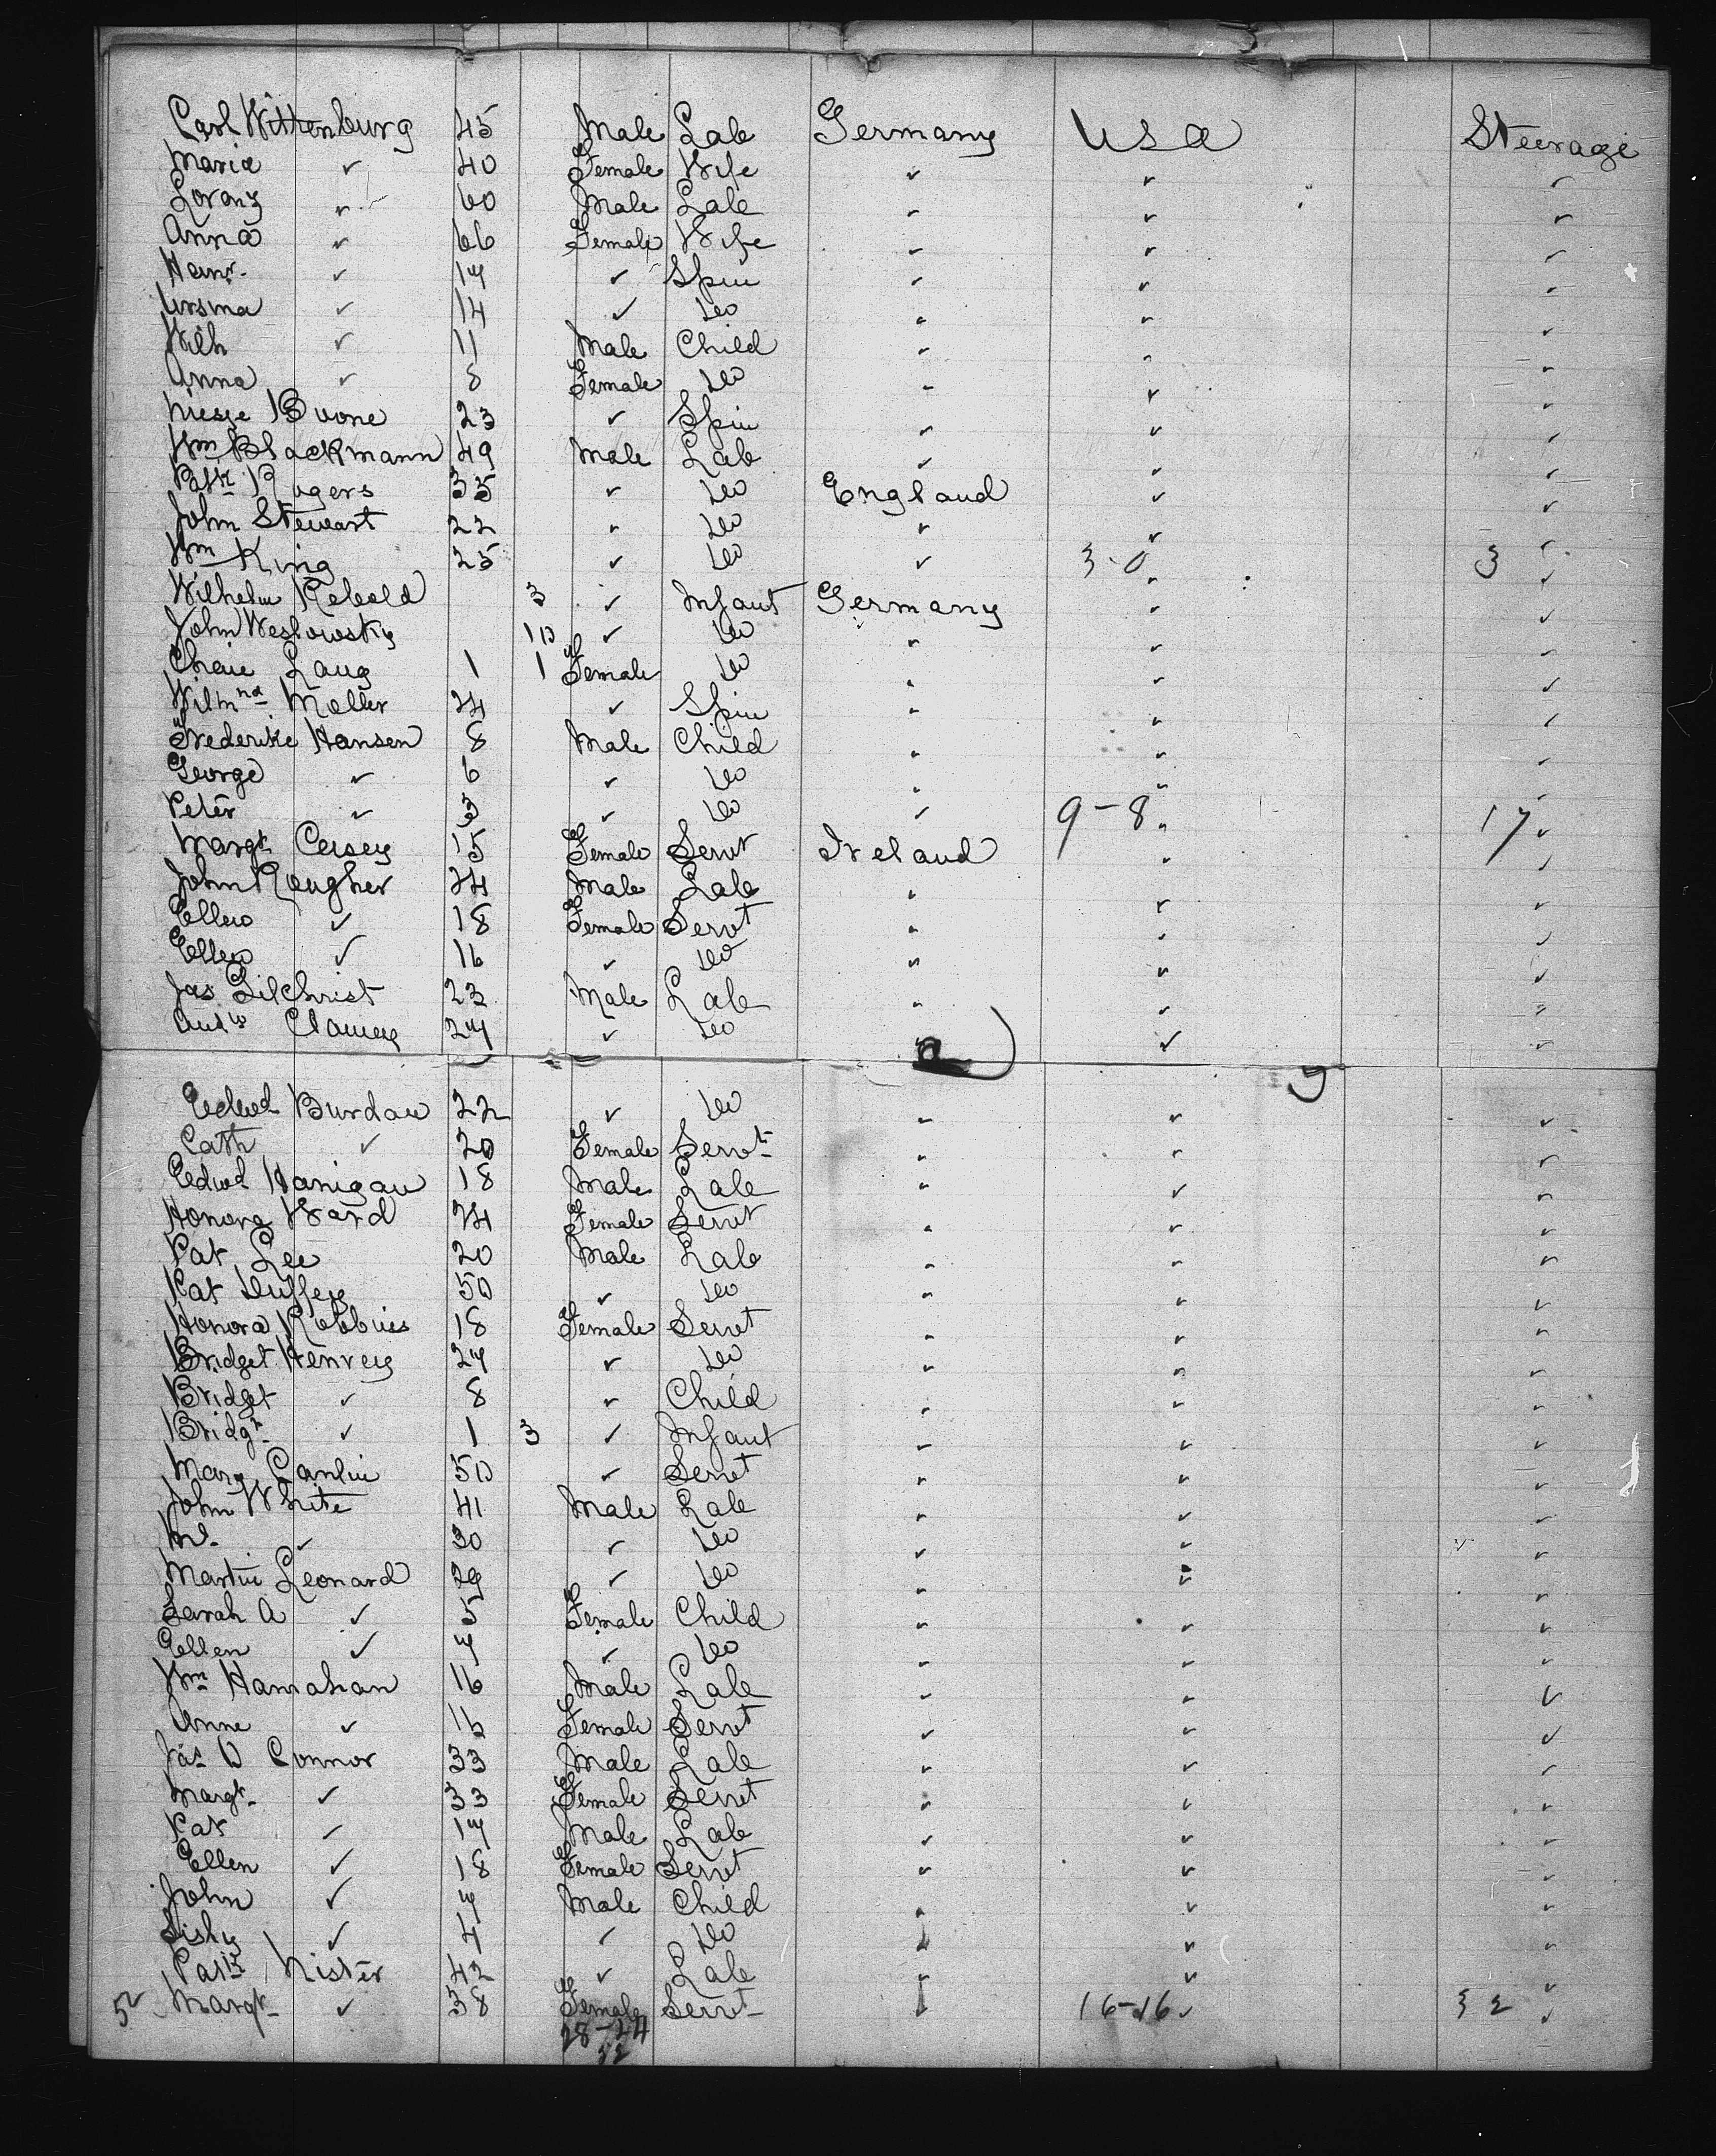 Carl Wittenburg 45 Male Lab Germany USA Steerage
Maria ✓ 40 Female Wife ✓ ✓ ✓
Lorenz ✓ 60 Male Lab ✓ ✓ ✓
Anna ✓ 66 Female Wife ✓ ✓ ✓
Henr. ✓ 17 ✓ Spin ✓ ✓ ✓
✓ 14 ✓ Do ✓ ✓ ✓
Wilh ✓ 11 Male Child ✓ ✓ ✓
Anna ✓ 8 Female Do ✓ ✓ ✓
Boone 23 ✓ Spin ✓ ✓ ✓
Wm Blackmann 49 Male Lab ✓ ✓ ✓
Patk Rogers 35 ✓ Do England ✓ ✓
John Stewart 22 ✓ Do ✓ ✓ ✓
Wm King 25 ✓ Do ✓ 3-0 ✓ 3 ✓
Wilhelm Rebold 3 ✓ Infant Germany ✓ ✓
John Weslowsky 10 ✓ Do ✓ ✓ ✓
Chaie Lang 1 1 Female Do ✓ ✓ ✓
Wilmna Moller 24 ✓ Spin ✓ ✓ ✓
Frederike Hansen 8 Male Child ✓ ✓ ✓
George ✓ 6 ✓ Do ✓ ✓ ✓
Peter ✓ 3 ✓ Do ✓ 9-8 ✓ 17 ✓
Margt Casey 15 Female Servt Ireland ✓ ✓
John Rougher 24 Male Lab ✓ ✓ ✓
Ellen ✓ 18 Female Servt ✓ ✓ ✓
Ellen ✓ 16 ✓ Do ✓ ✓ ✓
Jas Gilchrist 23 Male Lab ✓ ✓ ✓
Andw Clancy 27 ✓ Do ✓ ✓ ✓
Edwd Burdan 22 ✓ Do ✓ ✓ ✓
Cath ✓ 20 Female Servt ✓ ✓ ✓
Edwd Hanigan 18 Male Lab ✓ ✓ ✓
Honora Ward 24 Female Servt ✓ ✓ ✓
Pat Lee 20 Male Lab ✓ ✓ ✓
Pat Duffey 50 ✓ Do ✓ ✓ ✓
Honora Robbins 18 Female Servt ✓ ✓ ✓
Bridget Henrey 27 ✓ Do ✓ ✓ ✓
Bridget ✓ 8 ✓ Child ✓ ✓ ✓
Bridgt ✓ 1 3 ✓ Infant ✓ ✓ ✓
Mary Canlin 50 ✓ Servt ✓ ✓ ✓
John White 41 Male Lab ✓ ✓ ✓
✓ 30 ✓ Do ✓ ✓ ✓
Martin Leonard 29 ✓ Do ✓ ✓ ✓
Sarah A ✓ 5 Female Child ✓ ✓ ✓
Ellen ✓ 7 ✓ Do ✓ ✓ ✓
Wm Hanrahan 16 Male Lab ✓ ✓ ✓
Anne ✓ 16 Female Servt ✓ ✓ ✓
Jas O Connor 33 Male Lab ✓ ✓ ✓
Margt ✓ 33 Female Servt ✓ ✓ ✓
Pat ✓ 17 Male Lab ✓ ✓ ✓
Ellen ✓ 18 Female Servt ✓ ✓ ✓
John ✓ 7 Male Child ✓ ✓ ✓
✓ 4 ✓ Do ✓ ✓ ✓
Patk Nister 42 ✓ Lab ✓ ✓ ✓
52 Margt ✓ 38 Female Servt ✓ 16-16 ✓ 32 ✓
28-24
52